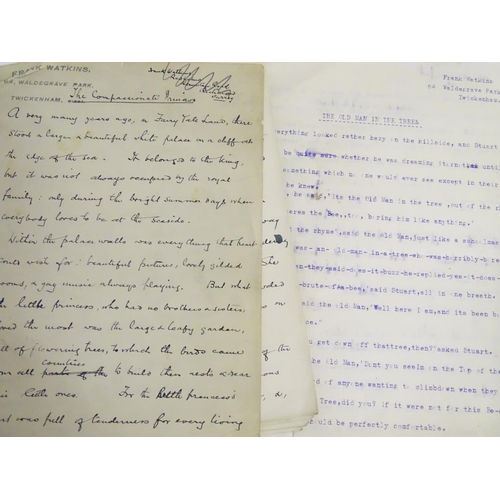 FRANK WATKINS,
68, WALDEGRAVE PARK,
TWICKENHAM,
The Compassionate Princess
A very many years ago, in Fairy Tale Land, there
stood a large & beautiful white palace on a cliff at
the edge of the sea. It belonged to the King,
but it was not always occupied by the royal
family: only during the bright summer days when
everybody loves to be at the seaside.
Within the palace walls was everything that heart
could wish for: beautiful pictures, lovely gilded
rooms, & gay music always playing. But what
little princess, who had no brothers & sisters,
most was the large & leafy garden,
of flowering trees, to which the birds came
from all countries to build their nests & rear
little ones. For the little princess's
was full of tenderness for every living
She
on
of this
Frank Watkins
68 Waldegrave Park
Twickenham
THE OLD MAN IN THE TREE
everything looked rather hazy on the hillside, and Stuart
be quite sure whether he was dreaming it or not until
something which no one would ever see except in their
he knew.
he said, 'its the Old Man in the tree, out of the
the Bee, too, boring him like anything.'
the rhyme', said the Old Man, just like a
was-an-old-man-in-a-tree-who-was-horribly-bored
they-said-does-it-buzz-he-replied-yes-it-does-
-brute-of-a-bee,' said Stuart, all in one breath.
said the Old Man, 'Well here I am, and its been
get down off that tree, then?' asked Stuart.
the Old Man, 'Dont you see Im on the Top of the
of anyone wanting to climb down when they
Tree, did you? If it were not for this Be-
should be perfectly comfortable.